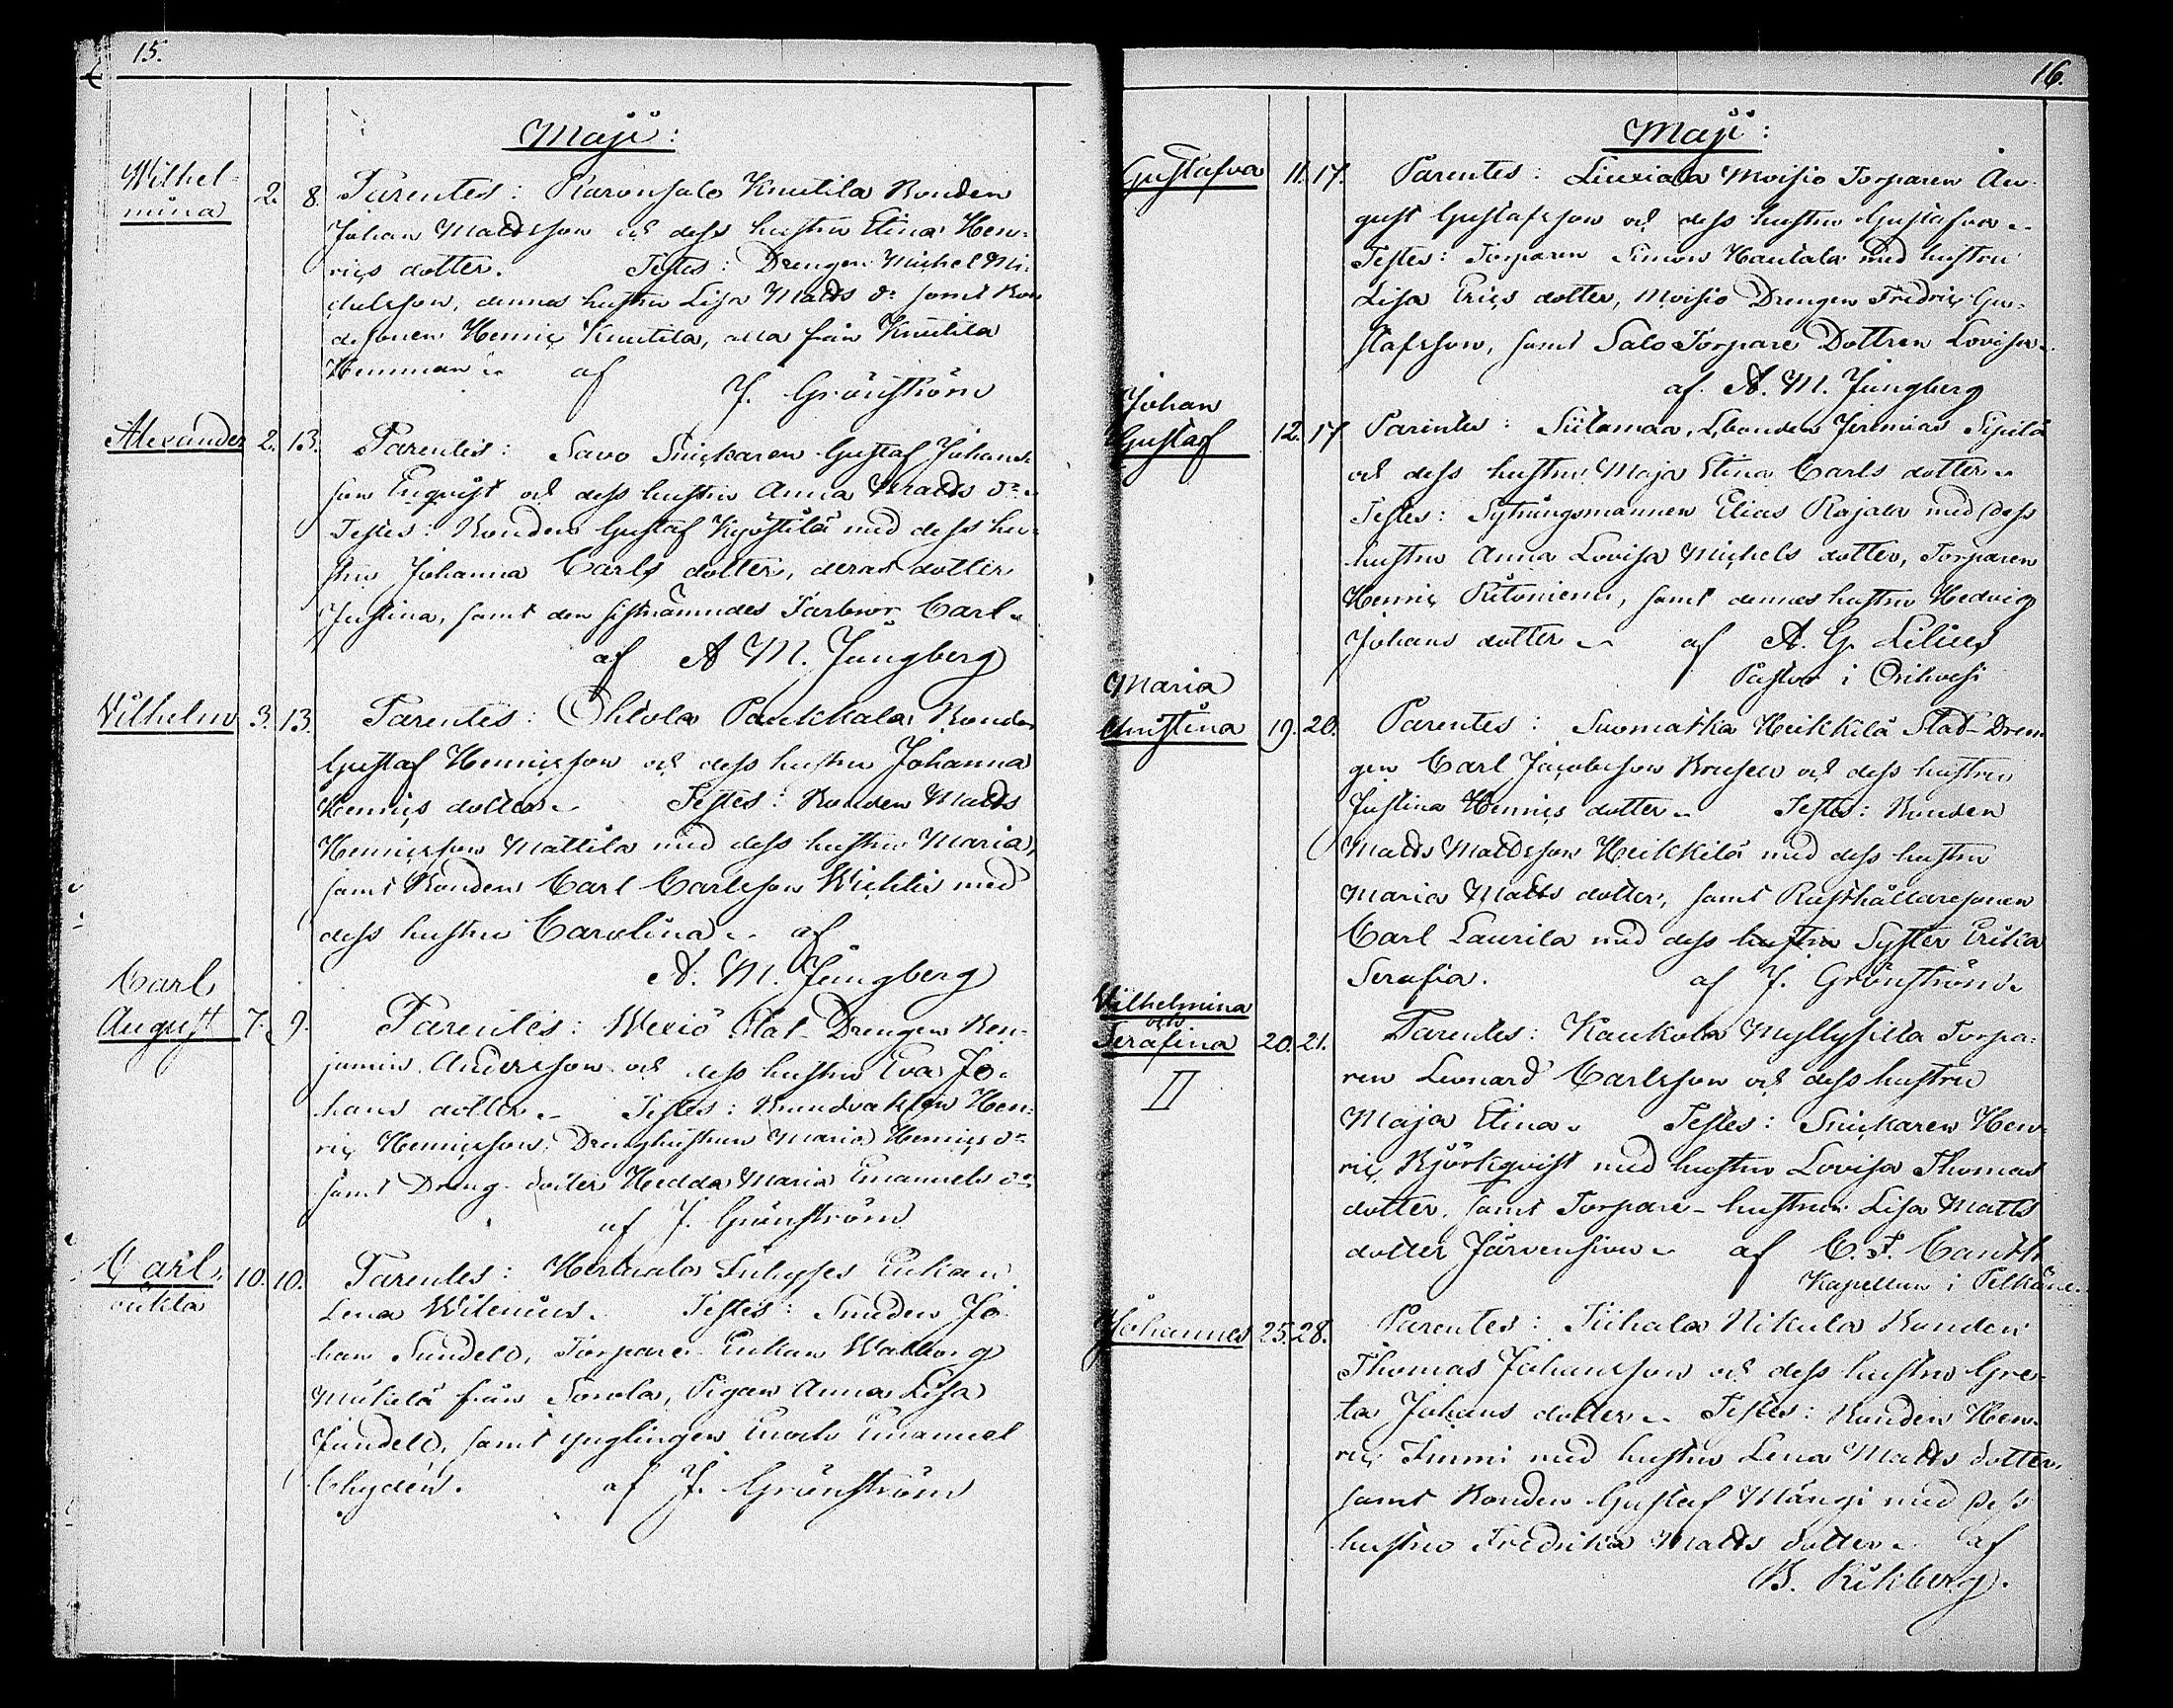 15.
Maji:
Wilhel-
mina 2. 8. Parentes: Raronsalo Knutila Bonden
Johan Mattsson och dess hustru Stina Hen-
rics dotter. Testes: Drengen Michel Mi-
chelsson, dennes hustru Lisa Matts dr samt Bon
desonen Henric Knutila, alla från Knutila
Hemman. af J. Grönström
Alexander 2. 13. Parentes: Savo Snickaren Gustaf Johans-
son Enqvist och dess hustru Anna Matts dr.
Testes: Bonden Gustaf Kyöstilä med dess hu-
stru Johanna Carls dotter, deras dotter
Justina, samt den sistnämndes Farbror Carl.
af A M. Jungberg
Vilhelm 3. 13. Parentes: Ohtola Paukkala Bonden
Gustaf Henricsson och dess hustru Johanna
Henrics dotter. Testes: Bonden Matts
Henricsson Mattila med dess hustru Maria,
samt Bonden Carl Carlsson Wichlis med
dess hustru Carolina. af
A. M. Jungberg
Carl
August 7. 9. Parentes: Wexiö Stat-Drengen Ben-
jamin Andersson och dess hustru Eva Jo-
hans dotter. Testes: Hen-
ric Henricsson, Drenghustrun Maria Henrics dr
samt Dreng-dotter Hedda Maria Emanuels dr
af J. Grönström
Carl, 10. 10. Parentes: Hertuala Enkan
oäkta Lena Wilenius. Testes: Smeden Jo-
han Sundell, Torpare-Enkan Walborg
Mikkilä från Sorola, Pigan Anna Lisa
Sundell, samt ynglingen Enoch Emanuel
Chydén. af J. Grönström
16.
Maji:
Gustafva 11. 17. Parentes: Liuxiala Moisio Torparen Au-
gust Gustafsson och dess hustru Gustafva.
Testes: Torparen Simon Hautala med hustru
Lisa Erics dotter, Moisio Drengen Fredric Gu-
stafsson, samt Salo Torpare Dottren Lovisa.
af A. M. Jungberg
Johan
Gustaf 12. 17 Parentes: Siitamaa, Lbonden Jeremias Sipilä
och dess hustru Maja Stina Carls dotter.
Testes: Sytningsmannen Elias Rajala med dess
hustru Anna Lovisa Michels dotter, Torparen
Henric Pitoniemi, samt dennes hustru Hedvig
Johans dotter. af A. G. Lilius
Pastor i Orihvesi
Maria
Christina 19. 20. Parentes: Suomatka Heikkilä Stat-Dren
gen Carl Jacobsson Brusell och dess hustru
Justina Henrics dotter. Testes: Bonden
Matts Mattsson Heikkilä med dess hustru
Maria Matts dotter, samt Rusthållaresonen
Carl Laurila med dess hustru Syster Erika
Serafia. af J. Grönström.
Vilhelmina
och
Serafina 20. 21. Parentes: Kaukola Myllysilla Torpa-
II
ren Leonard Carlsson och dess hustru
Maja Stina. Testes: Snickaren Hen-
ric Björkqvist med hustru Lovisa Thomas
dotter, samt Torpare-hustrun Lisa Matts
dotter Järvensivu. af C. F. Canth
Kapellan i Pelkäne.
Johannes 25. 28. Parentes: Tiihala Nikula Bonden
Thomas Johansson och dess hustru Gre-
ta Johans dotter. Testes: Bonden Hen-
ric Timmi med hustru Lena Matts dotter,
samt Bonden Gustaf Mångi med dess
hustru Fredrika Matts dotter. af
B. Kihlberg.